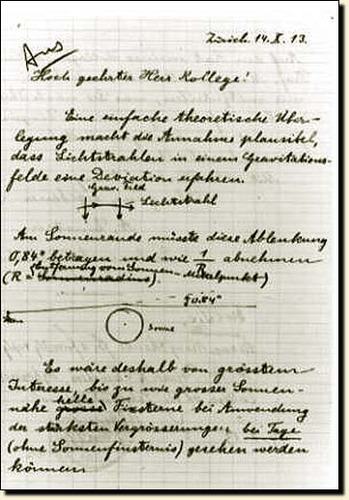 Zürich. 14. X. 13.
Hoch geehrter Herr Kollege!
Eine einfache theoretische Über-
legung macht die Annahme plausibel,
dass Lichtstrahlen in einem Gravitations-
felde eine Deviation erfahren.
Grav. Feld
Lichtstrahl
Am Sonnenrande müsste diese Ablenkung
0,84" betragen und wie 1/R abnehmen
(R = Sonnenradius).
0.84"
Sonne
Es wäre deshalb von grösstem
Interesse, bis zu wie grosser Sonnen-
nähe helle grosse Fixsterne bei Anwendung
der stärksten Vergrösserungen bei Tage
(ohne Sonnenfinsternis) gesehen werden
können